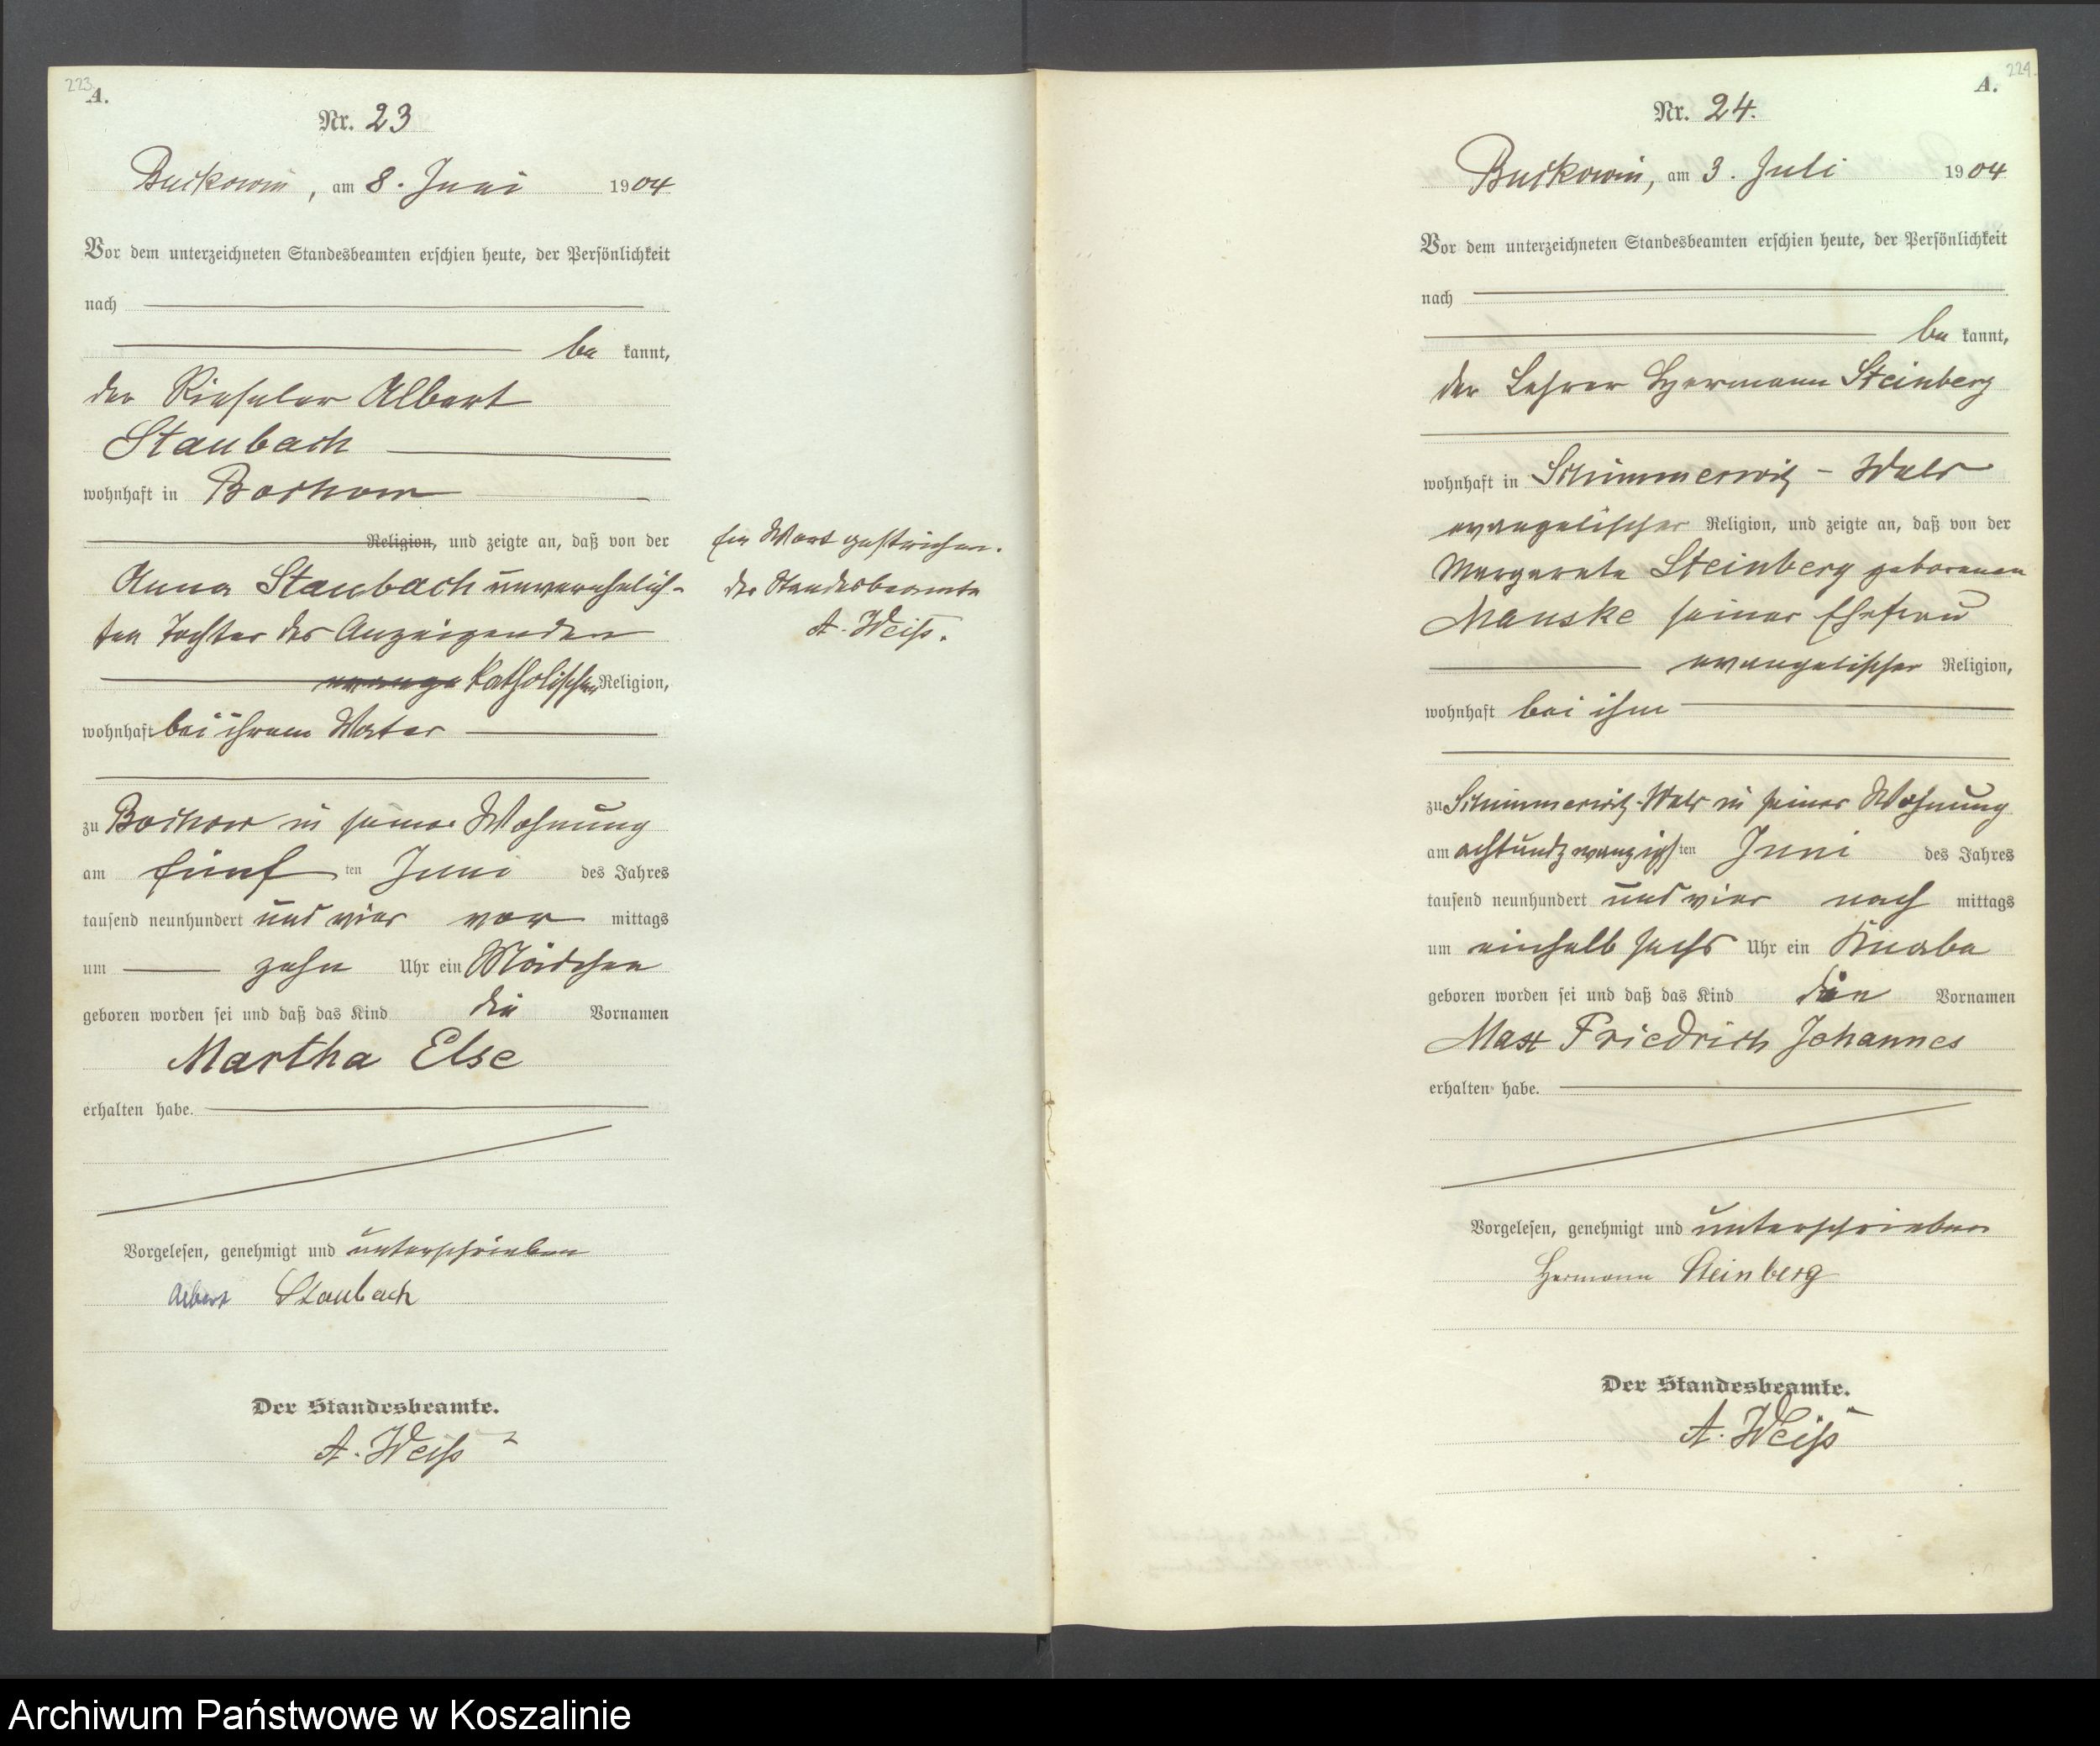 223.
A.
Nr. 23
Buckowin, am 8. Juni 1904
Vor dem unterzeichneten Standesbeamten erschien heute, der Persönlichkeit
nach
be kannt,
der Rieseler Albert
Staubach
wohnhaft in Bochow
Religion, und zeigte an, daß von der
Anna Staubach unverehelich-
ten Tochter des Anzeigenden
katholischer Religion,
wohnhaft bei ihrem Vater
zu Bochow in seiner Wohnung
am fünf ten Juni des Jahres
tausend neunhundert und vier vor mittags
um zehn Uhr ein Mädchen
geboren worden sei und daß das Kind die Vornamen
Martha Else
erhalten habe.
Vorgelesen, genehmigt und unterschrieben
Albert Staubach
Der Standesbeamte.
A. Weiß
Ein Wort gestrichen.
Der Standesbeamte
A. Weiß.
224.
A.
Nr. 24.
Buckowin, am 3. Juli 1904
Vor dem unterzeichneten Standesbeamten erschien heute, der Persönlichkeit
nach
be kannt,
der Lehrer Hermann Steinberg
wohnhaft in Schimmerwitz - Wald
evangelischer Religion, und zeigte an, daß von der
Margarete Steinberg geborenen
Manske seiner Ehefrau
evangelischer Religion,
wohnhaft bei ihm
zu Schimmerwitz-Wald in seiner Wohnung
am achtundzwanzigs ten Juni des Jahres
tausend neunhundert und vier nach mittags
um einhalb sechs Uhr ein Knabe
geboren worden sei und daß das Kind die Vornamen
Max Friedrich Johannes
erhalten habe.
Vorgelesen, genehmigt und unterschrieben
Hermann Steinberg
Der Standesbeamte.
A. Weiß
Archiwum Państwowe w Koszalinie